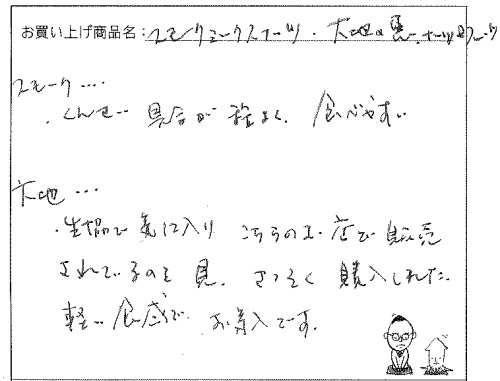 お買い上げ商品名：スモークミックスナーツ・大地の恵みナーツ&フルーツ
スモーク・・・
・くんせい具合が程よく、食べやすい
大地・・・
・生協で気に入り こちらのお店で販売
されているのを見、さっそく購入しました。
軽い食感でお気に入です。